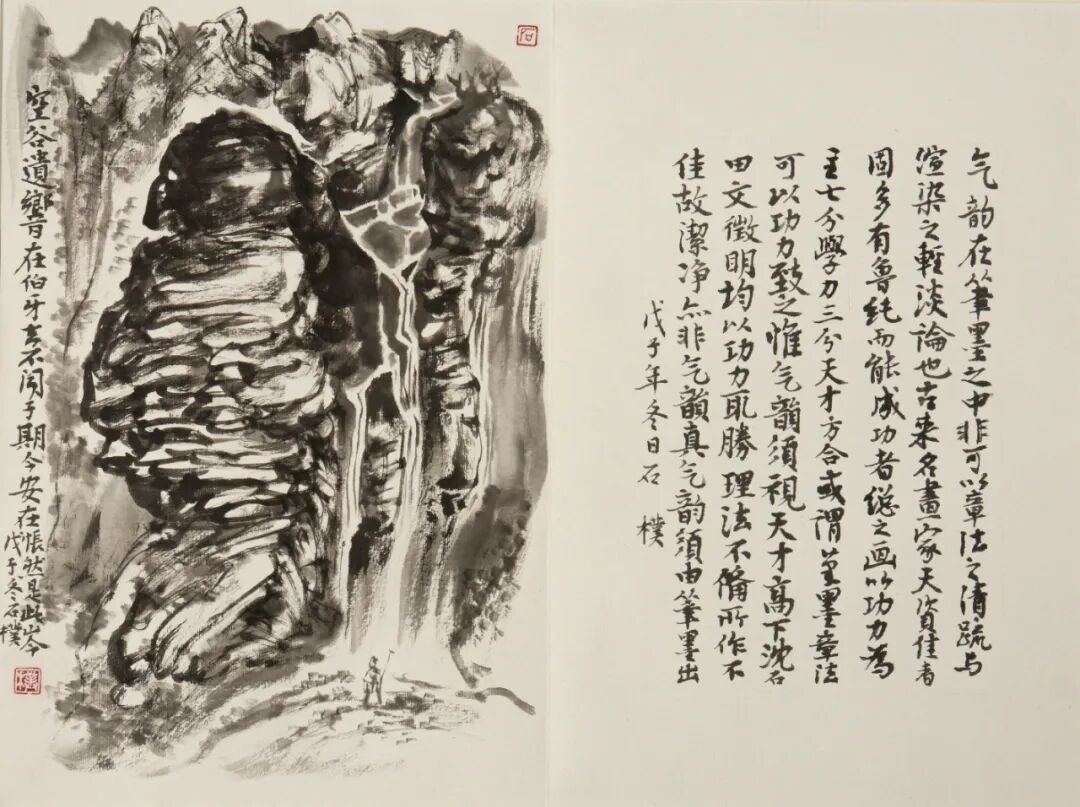 气韵在筆墨之中非可以章法之清疏与
渲染之輕淡論也古来名畫家天資佳者
固多有鲁纯而能成功者總之画以功力為
主七分學力三分天才方合或謂筆墨章法
可以功力致之惟气韻須視天才高下沈石
田文徵明均以功力取勝理法不備所作不
佳故潔净亦非气韻真气韵須由筆墨出
戊子年冬日石樸
石
空谷遺響在伯牙去不闻子期今安在悵然是此岑
戊子冬石樸
樸